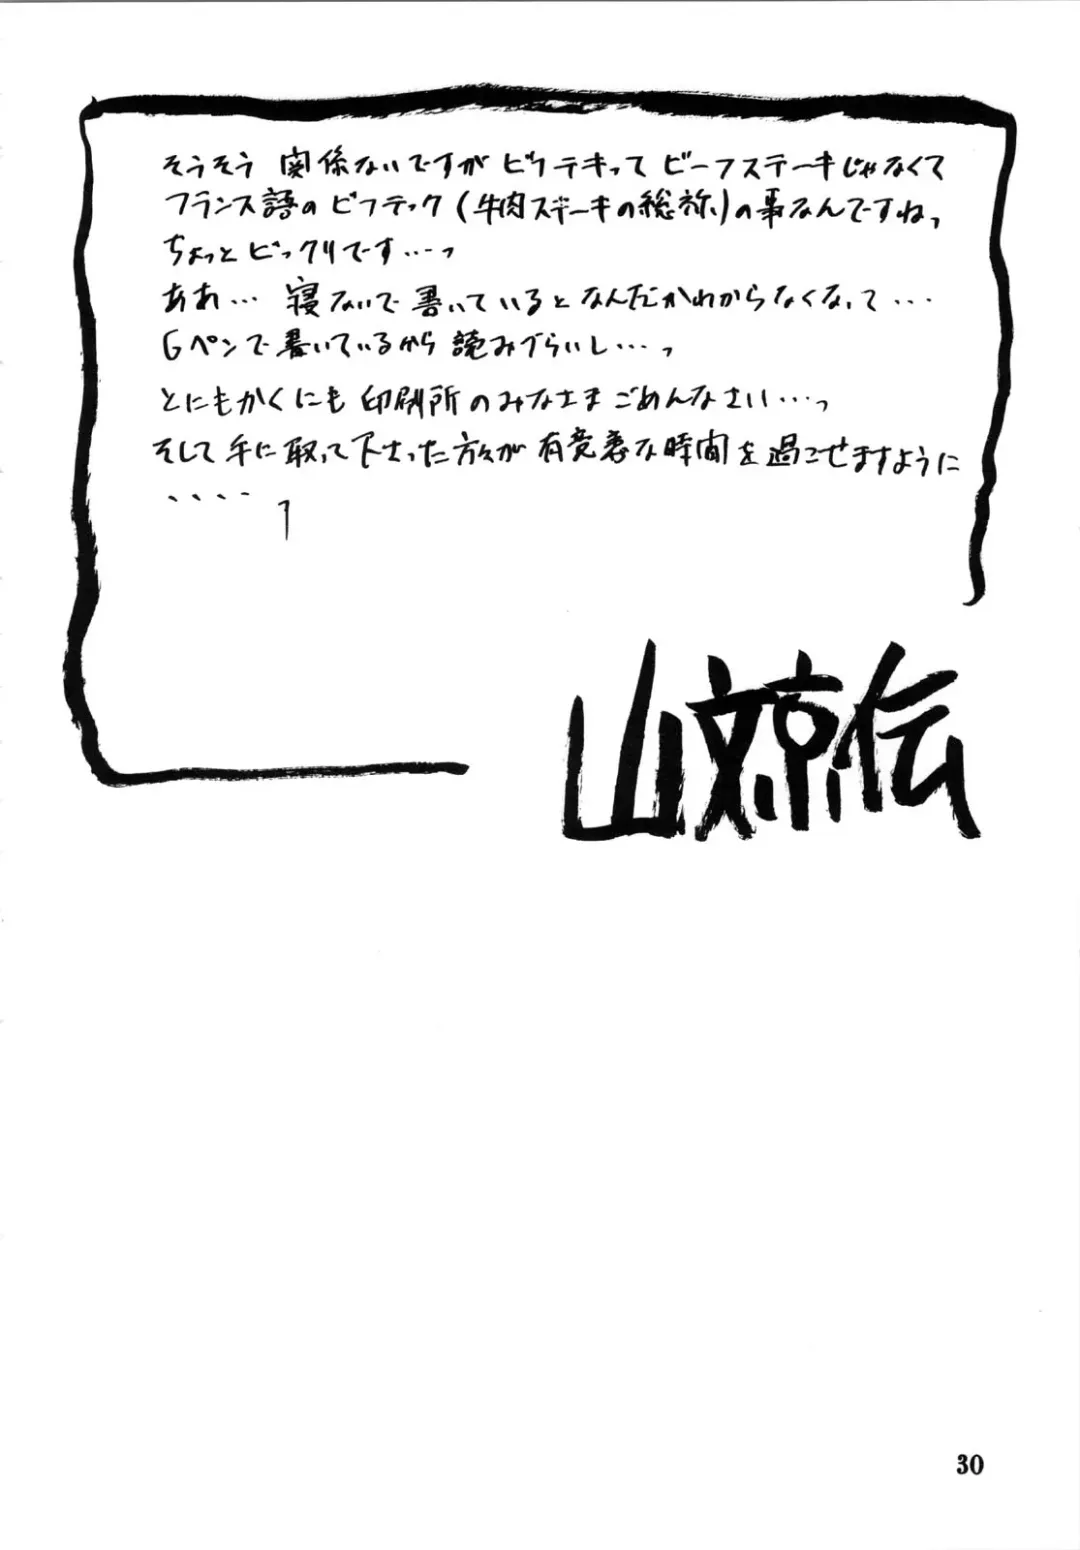 そうそう 関係ないですが ビフテキって ビーフステーキじゃなくて
フランス語の ビフテック (牛肉ステーキの総称)の事なんですねっ
ちょっと ビックリです…っ
ああ… 寝ないで 書いていると なんだかわからなくなって…
Gペンで書いているから 読みづらいし…っ
とにもかくにも 印刷所のみなさま ごめんなさい…っ
そして手に取って下さった方々が 有意義な時間を過ごせますように
････
山文京伝
30